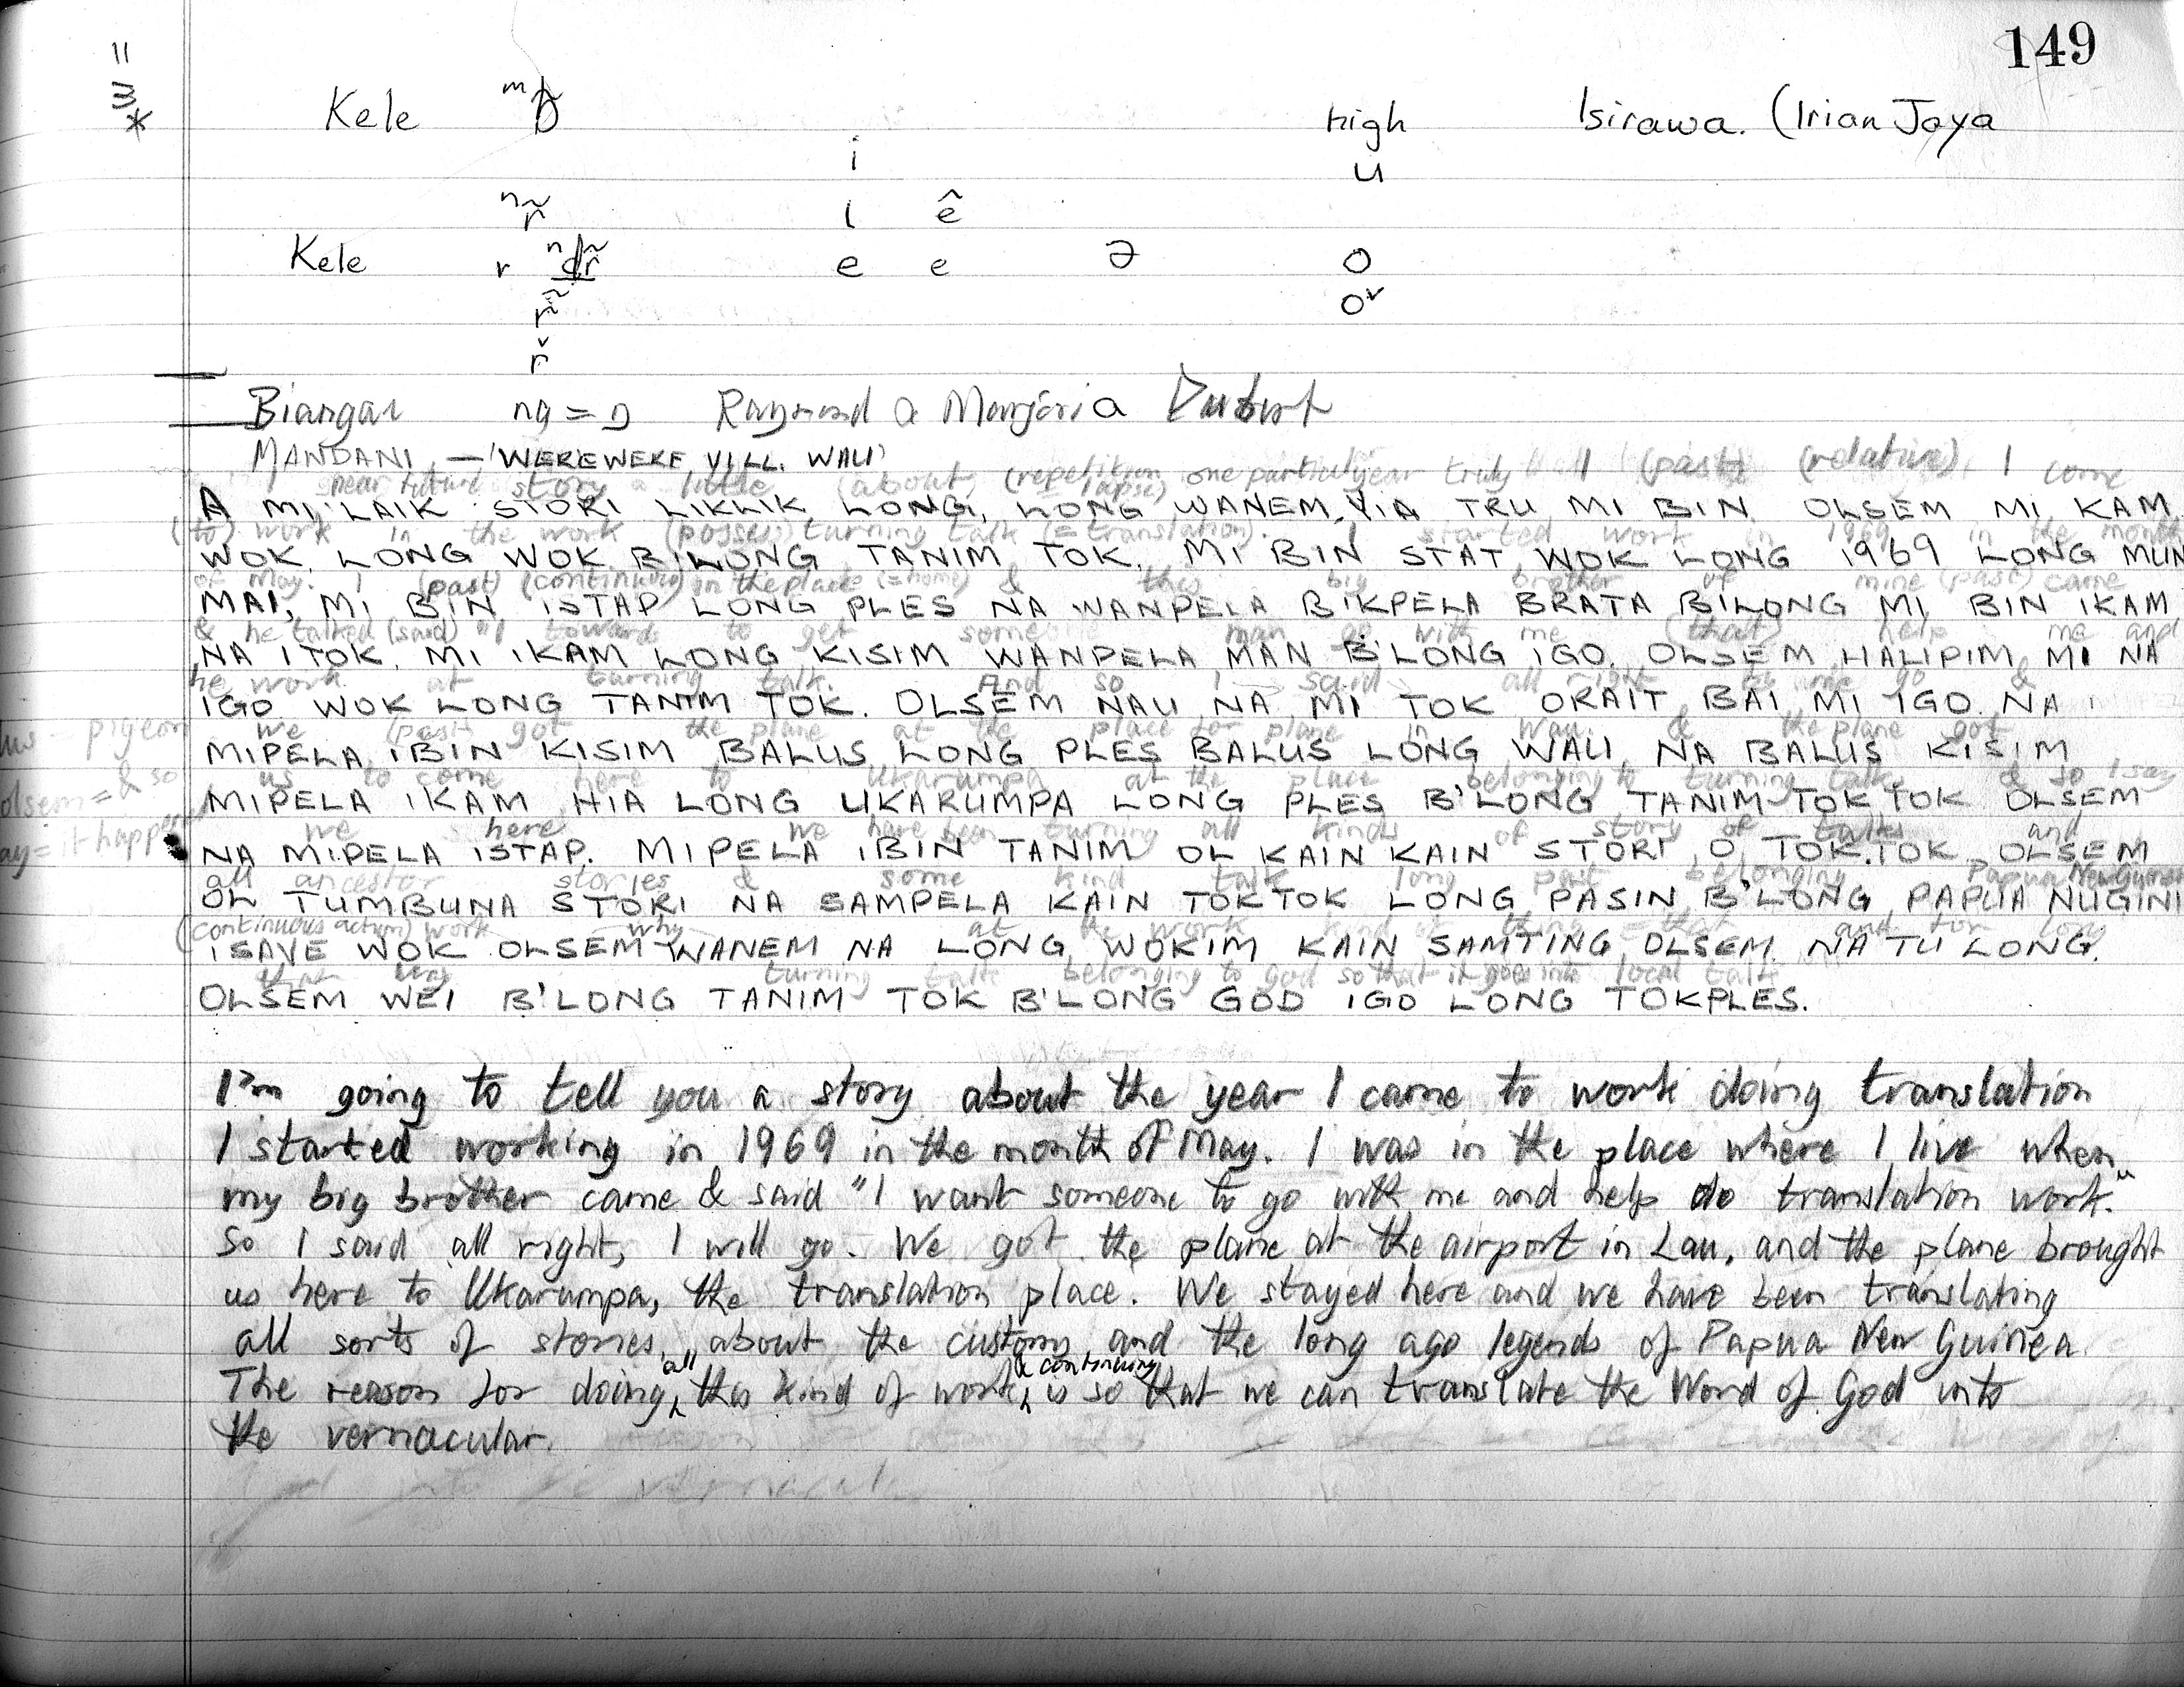 149
* 3 =
Kele ᵐb̃ high Isirawa. (Irian Jaya
i u
ⁿr̃ ɩ ê
Kele r ⁿdr̃ e e ə o
r̃ o˅
ř
Biangai ng = ŋ Raymond a Marjoria
MANDANI — 'WEREWERE VILL. WAU'
near future story a little (about) (repetition = lapse) one particular year truly I (past) (relative) I come
A MI LAIK STORI LIKLIK LONG, LONG WANEM YIA TRU MI BIN OLSEM MI KAM
(to) work in the work (possess) turning talk (= translation). I started work in 1969 in the month
WOK LONG WOK BILONG TANIM TOK. MI BIN STAT WOK LONG 1969 LONG MUN
of May. I (past) (continuous) in the place (= home) & this big brother of mine (past) came
MAI, MI BIN ISTAP LONG PLES NA WANPELA BIKPELA BRATA BILONG MI BIN IKAM
& he talked (said) "I towards to get some man go with me (that) help me and
NA ITOK, MI IKAM LONG KISIM WANPELA MAN B'LONG IGO OLSEM HALIPIM MI NA
he work at turning talk. And so I said all right me go &
IGO WOK LONG TANIM TOK. OLSEM NAU NA MI TOK ORAIT BAI MI IGO NA
pigeon we (past) got the plane at the place for plane in Wau & the plane got
MIPELA IBIN KISIM BALUS LONG PLES BALUS LONG WAU, NA BALUS KISIM
olsem = & so us to come here to Ukarumpa at the place belonging to turning talk & so I say
MIPELA IKAM HIA LONG UKARUMPA LONG PLES B'LONG TANIM TOK TOK OLSEM
= it happened we here we have been turning all kinds of story of talks and
NA MIPELA ISTAP. MIPELA IBIN TANIM OL KAIN KAIN STORI O TOKTOK, OLSEM
all ancestor stories & some kind talk long past belonging Papua New Guinea
OL TUMBUNA STORI NA SAMPELA KAIN TOKTOK LONG PASIN B'LONG PAPUA NUGINI
(continuous action) work why at the work kind of thing = that and for long
ISAVE WOK OLSEM WANEM NA LONG WOKIM KAIN SAMTING OLSEM NA TU LONG.
turning talk belonging to god so that it goes into local talk
OLSEM WEI B'LONG TANIM TOK B'LONG GOD IGO LONG TOKPLES.
I'm going to tell you a story about the year I came to work doing translation
I started working in 1969 in the month of May. I was in the place where I live when
my big brother came & said "I want someone to go with me and help do translation work."
So I said all right, I will go. We got the plane at the airport in Lau, and the plane brought
us here to Ukarumpa, the translation place. We stayed here and we have been translating
all sorts of stories, about the customs and the long ago legends of Papua New Guinea.
The reason for doing all this kind of work, & continuing is so that we can translate the Word of God into
the vernacular.